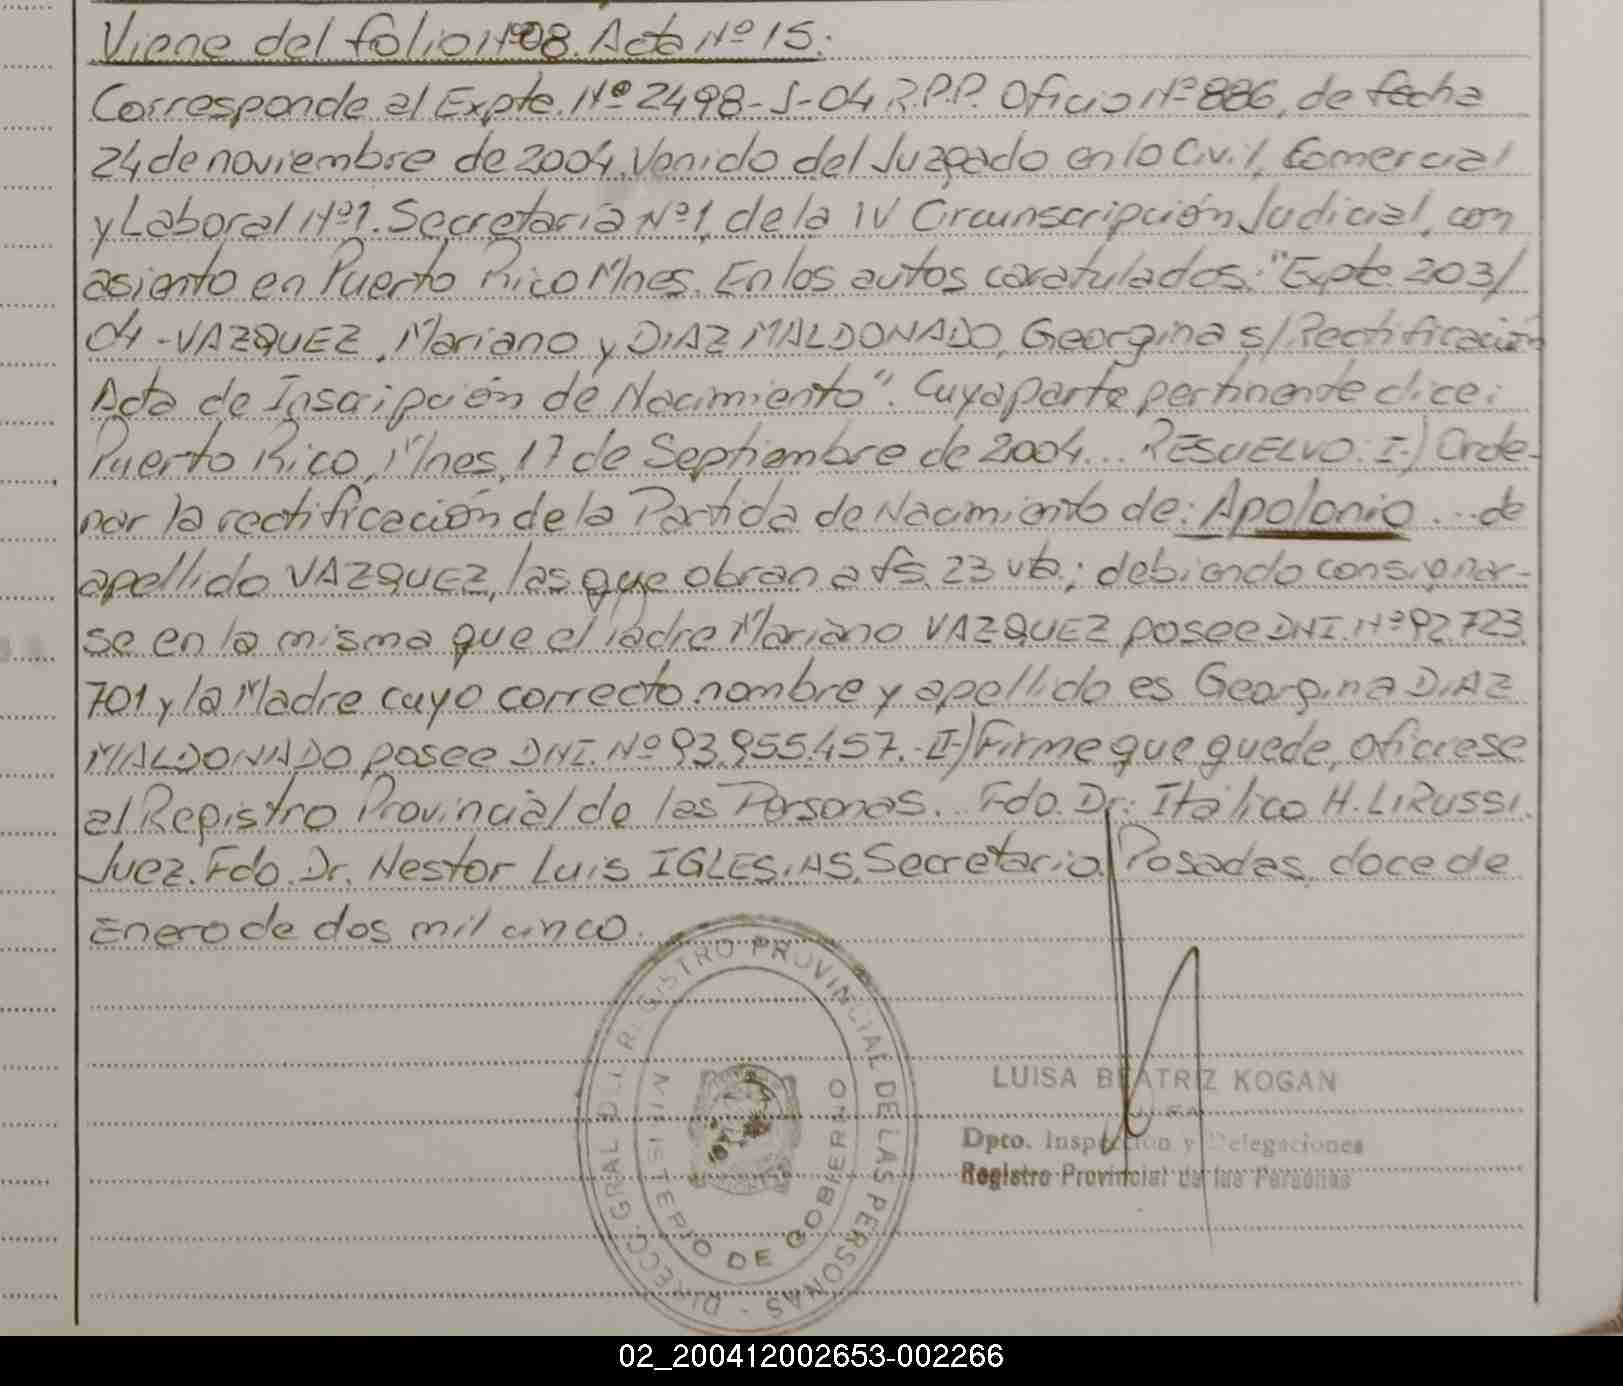 Viene del folio Nº 08. Acta Nº 15.
Corresponde al Expte. Nº 2498-S-04 R.P.P. Oficio Nº 886, de fecha
24 de noviembre de 2004. Venido del Juzgado en lo Civil, Comercial
y Laboral Nº 1. Secretaría Nº 1, de la IV Circunscripción Judicial, con
asiento en Puerto Rico Mnes. En los autos caratulados: "Expte. 203/
04 - VAZQUEZ, Mariano y DIAZ MALDONADO, Georgina s/ Rectificación
Acta de Inscripción de Nacimiento". Cuya parte pertinente dice:
Puerto Rico, Mnes, 17 de Septiembre de 2004... RESUELVO: I-) Orde-
nar la rectificación de la Partida de Nacimiento de: Apolonio ... de
apellido VAZQUEZ, las que obran a fs. 23 vta; debiendo consignar-
se en la misma que el Padre Mariano VAZQUEZ posee DNI. Nº 92.723.
701 y la Madre cuyo correcto nombre y apellido es Georgina DIAZ
MALDONADO posee DNI. Nº 93.955.457.- II-) Firme que quede, ofíciese
al Registro Provincial de las Personas... Fdo. Dr: Itálico H. LIRUSSI.
Juez. Fdo. Dr. Nestor Luis IGLESIAS, Secretario. Posadas, doce de
Enero de dos mil cinco.
DIRECC. GRAL. DEL REGISTRO PROVINCIAL DE LAS PERSONAS -
MINISTERIO DE GOBIERNO
LUISA BEATRIZ KOGAN
Dpto. Inspección y Delegaciones
Registro Provincial de las Personas
02_200412002653-002266